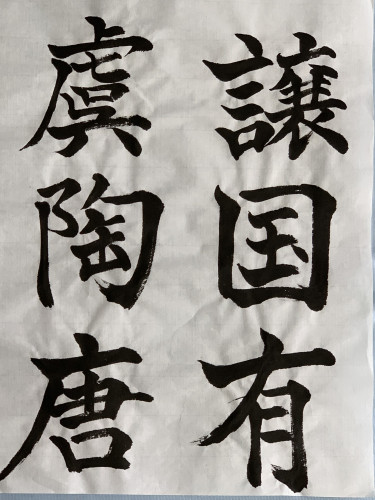 譲国有
虞陶唐